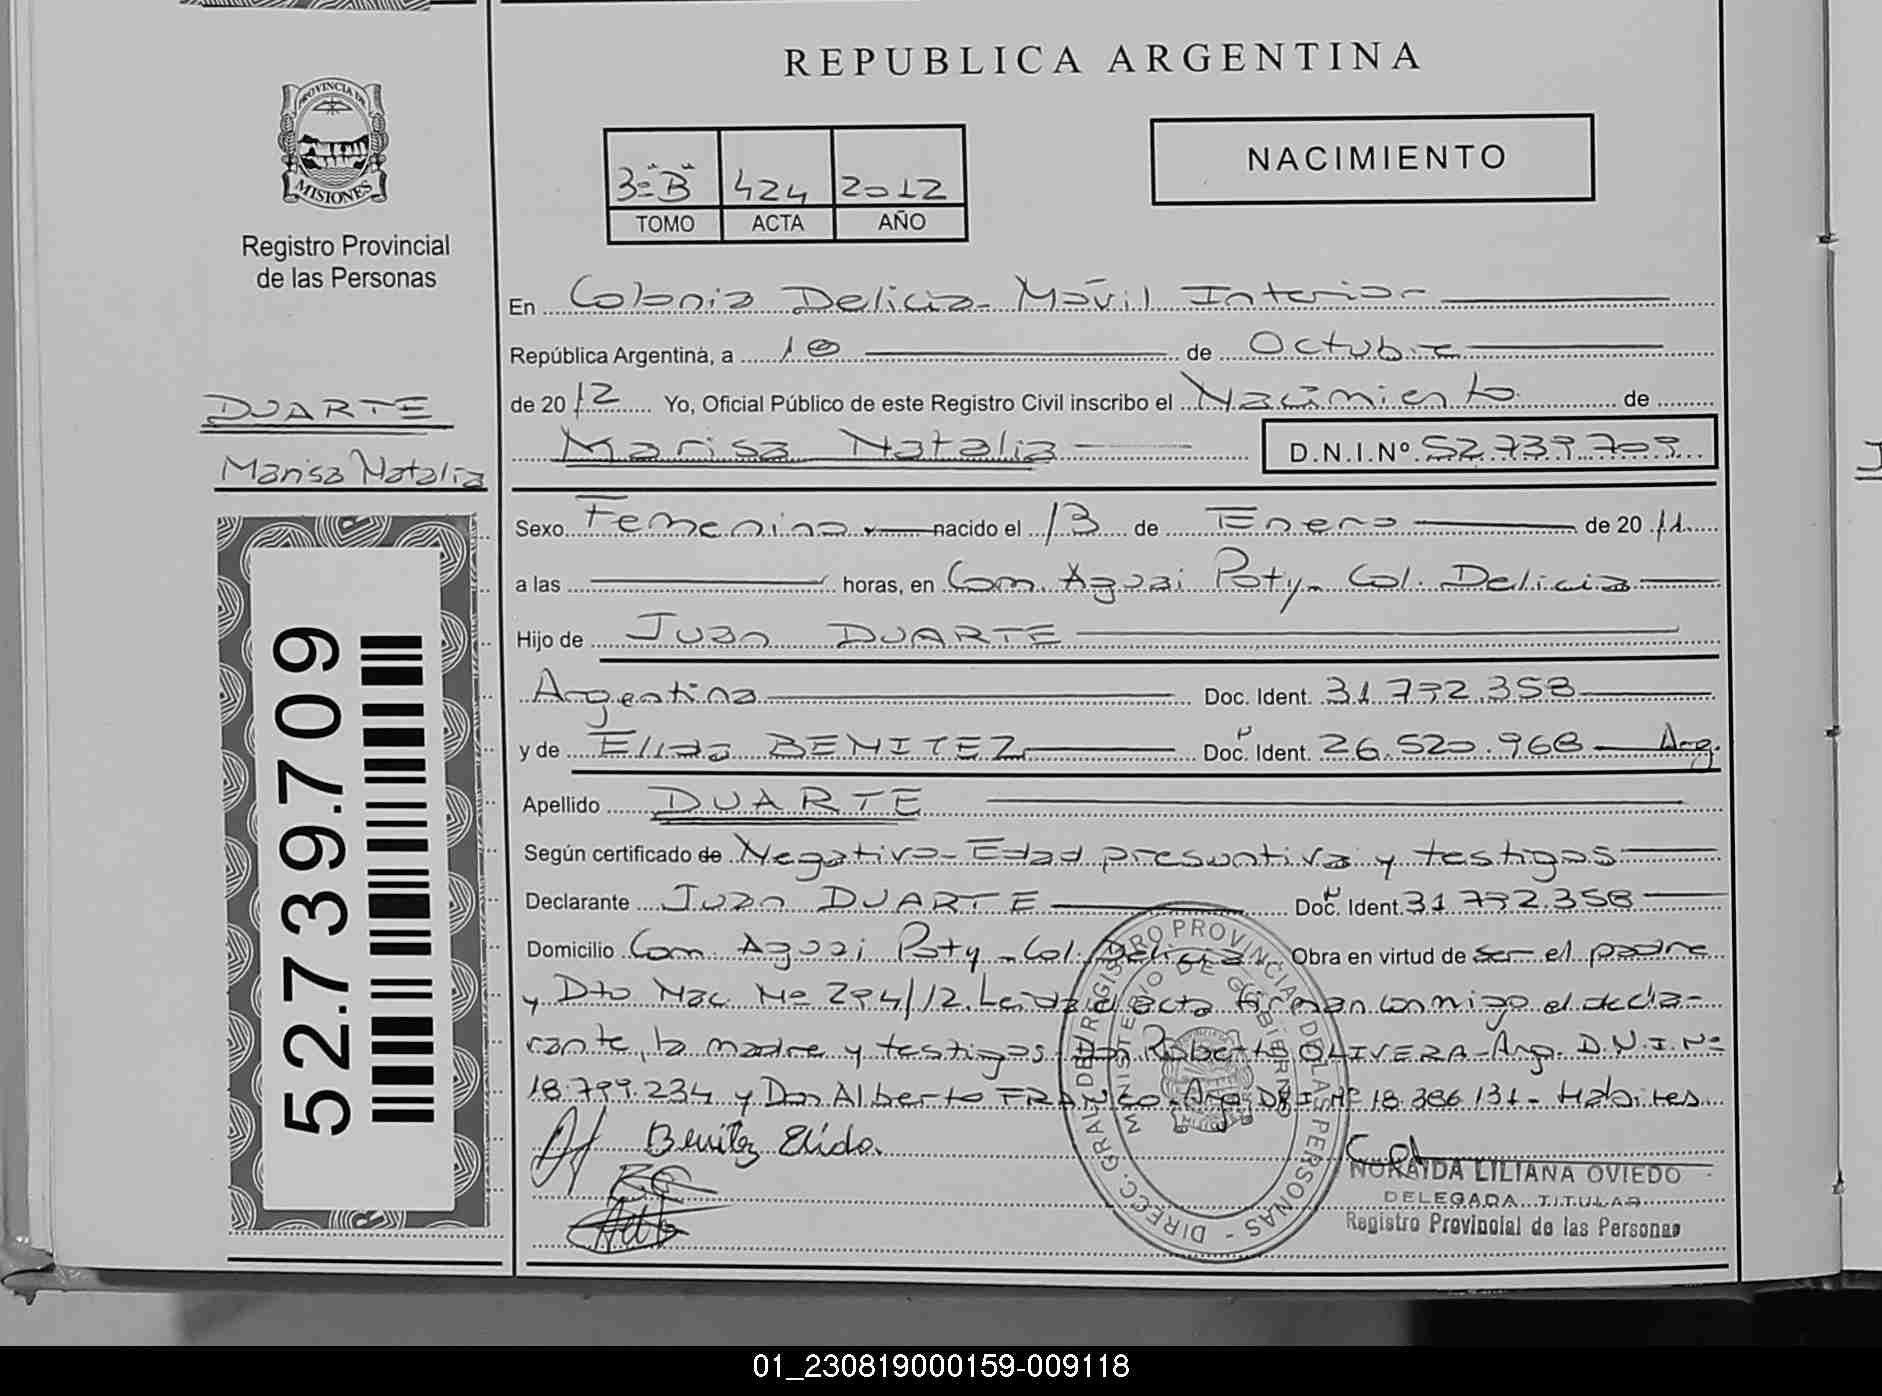 REPUBLICA ARGENTINA
PROVINCIA DE
MISIONES
Registro Provincial
de las Personas
NACIMIENTO
3="B" 424 2012
TOMO ACTA AÑO
En Colonia Delicia- Móvil Interior
República Argentina, a 10 de Octubre
de 2012 Yo, Oficial Público de este Registro Civil inscribo el Nacimiento de
DUARTE
Marisa Natalia
Marisa Natalia D.N.I.Nº 52.739.709
Sexo Femenino nacido el 13 de Enero de 2011
a las horas, en Com. Aguai Poty- Col. Delicia
Hijo de Juan DUARTE
Argentina Doc. Ident. 31.732.358
y de Elida BENITEZ Doc. Ident. 26.520.968 Arg.
Apellido DUARTE
Según certificado de Negativo- Edad presuntiva y testigos
Declarante Juan DUARTE Doc. Ident. 31.732.358
Domicilio Com. Aguai Poty- Col. Delicia Obra en virtud de ser el padre
y Dto Nac. Nº 294/12. Leida el acta firman conmigo el decla-
rante, la madre y testigos Don Roberto OLIVERA- Arg. D.N.I. Nº
18.799.234 y Don Alberto FRANCO- Arg. DNI Nº 18.386.131- Hábiles
Benitez Elida.
52.739.709
DIREC. GRAL DEL REGISTRO PROVINCIAL DE LAS PERSONAS -
MINISTERIO DE GOBIERNO
NORAIDA LILIANA OVIEDO
DELEGADA TITULAR
Registro Provincial de las Personas
01_230819000159-009118